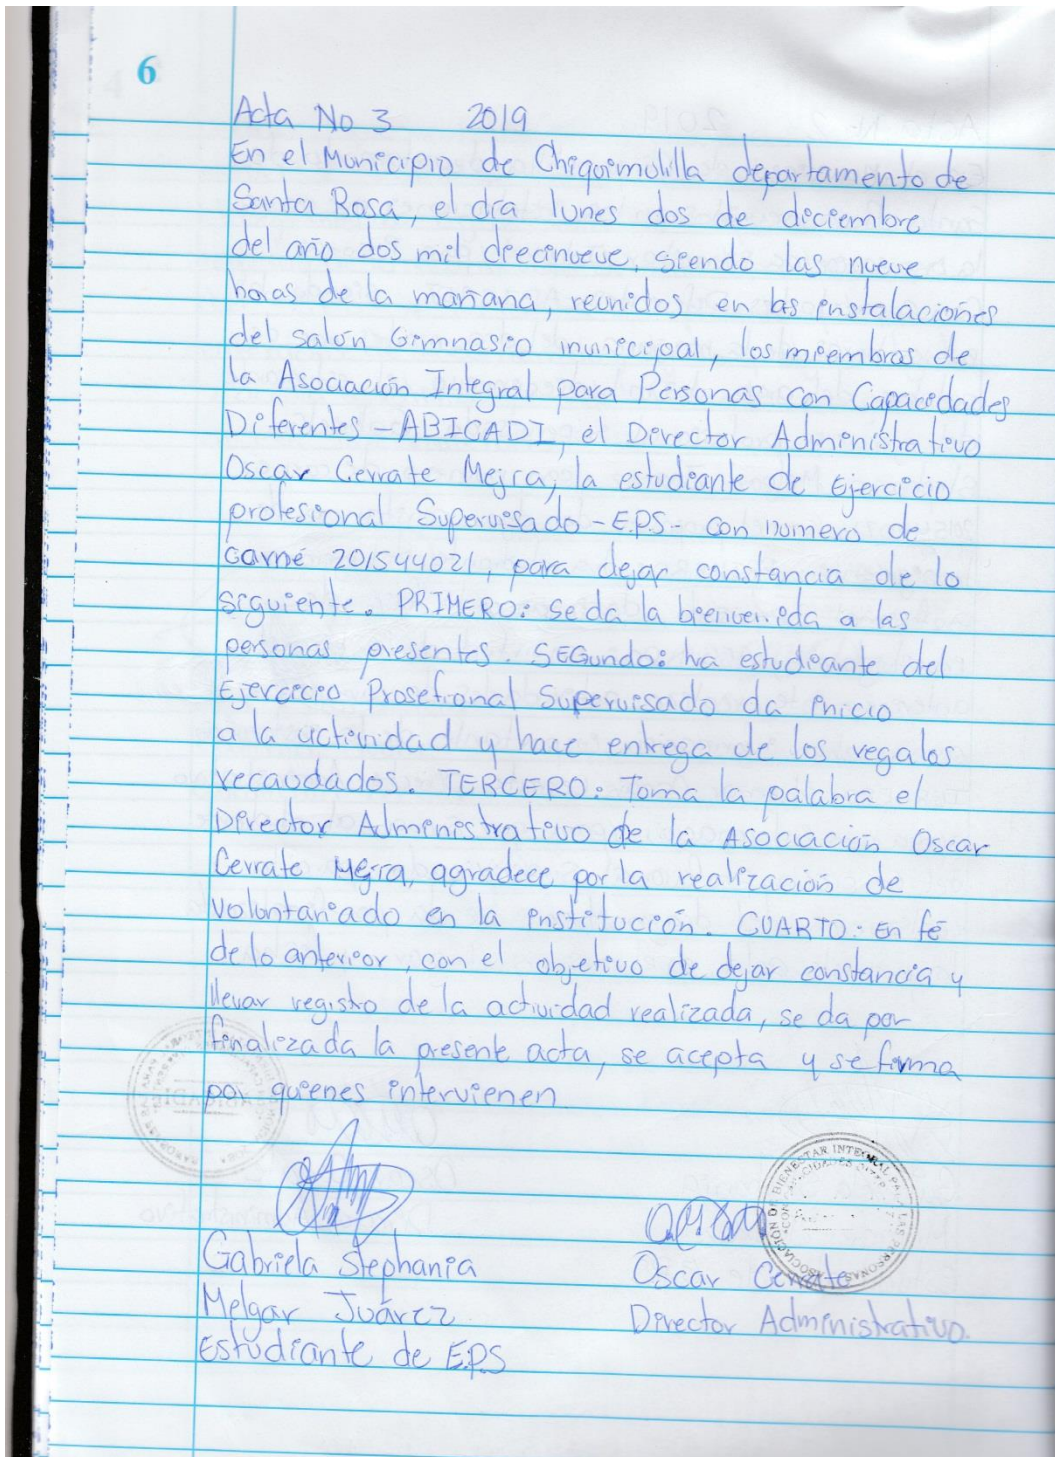 6
Acta No 3 2019
En el Municipio de Chiquimulilla departamento de
Santa Rosa, el día lunes dos de diciembre
del año dos mil diecinueve, siendo las nueve
horas de la mañana, reunidos en las instalaciones
del salón Gimnasio municipal, los miembros de
la Asociación Integral para Personas con Capacidades
Diferentes - ABICADI, el Director Administrativo
Oscar Cerrate Mejía, la estudiante de Ejercicio
profesional Supervisado - E.P.S - con numero de
carné 201544021, para dejar constancia de lo
siguiente. PRIMERO: Se da la bienvenida a las
personas presentes. SEGundo: La estudiante del
Ejercicio Prosefional Supervisado da inicio
a la actividad y hace entrega de los regalos
recaudados. TERCERO: Toma la palabra el
Director Administrativo de la Asociación Oscar
Cerrate Mejía, agradece por la realización de
voluntariado en la institución. CUARTO: En fé
de lo anterior, con el objetivo de dejar constancia y
llevar registro de la actividad realizada, se da por
finalizada la presente acta, se acepta y se firma
por quienes intervienen
Gabriela Stephania
Melgar Juárez
Estudiante de E.P.S
Oscar Cerrate
Director Administrativo.
ASOCIACIÓN DE BIENESTAR INTEGRAL PARA LAS PERSONAS